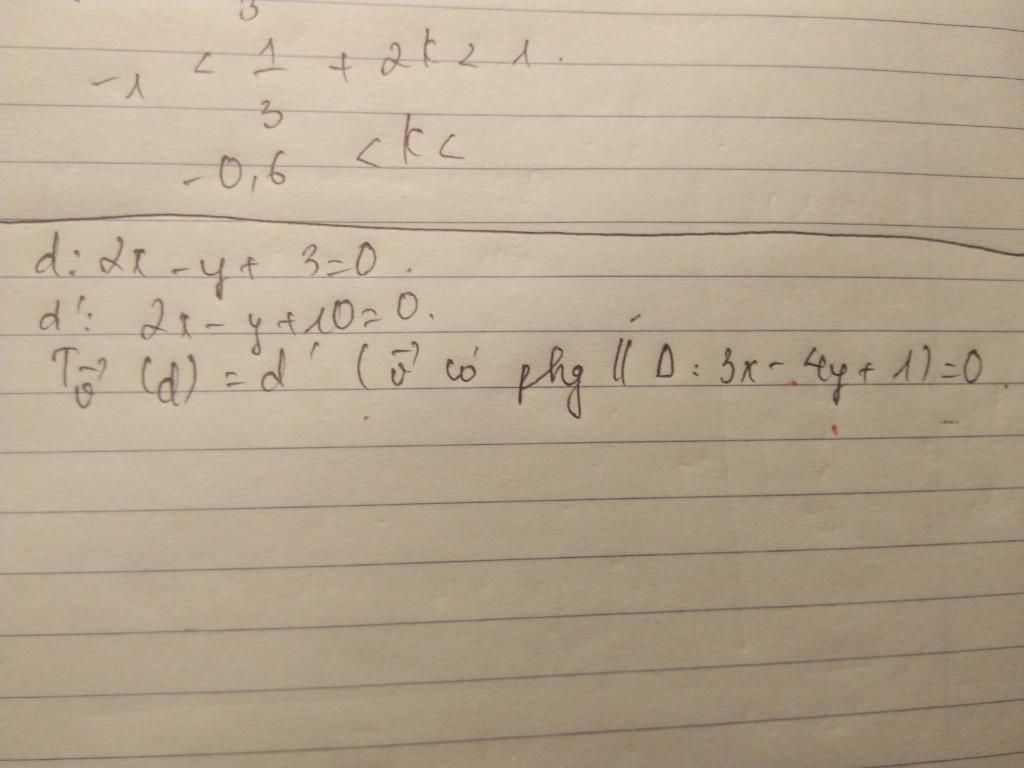 3
-1 < 1/3 + 2k < 1.
-0,6 < k <
d: 2x - y + 3 = 0.
d': 2x - y + 10 = 0.
Tv⃗ (d) = d' ( v⃗ có phg // Δ : 3x - 4y + 1) = 0.